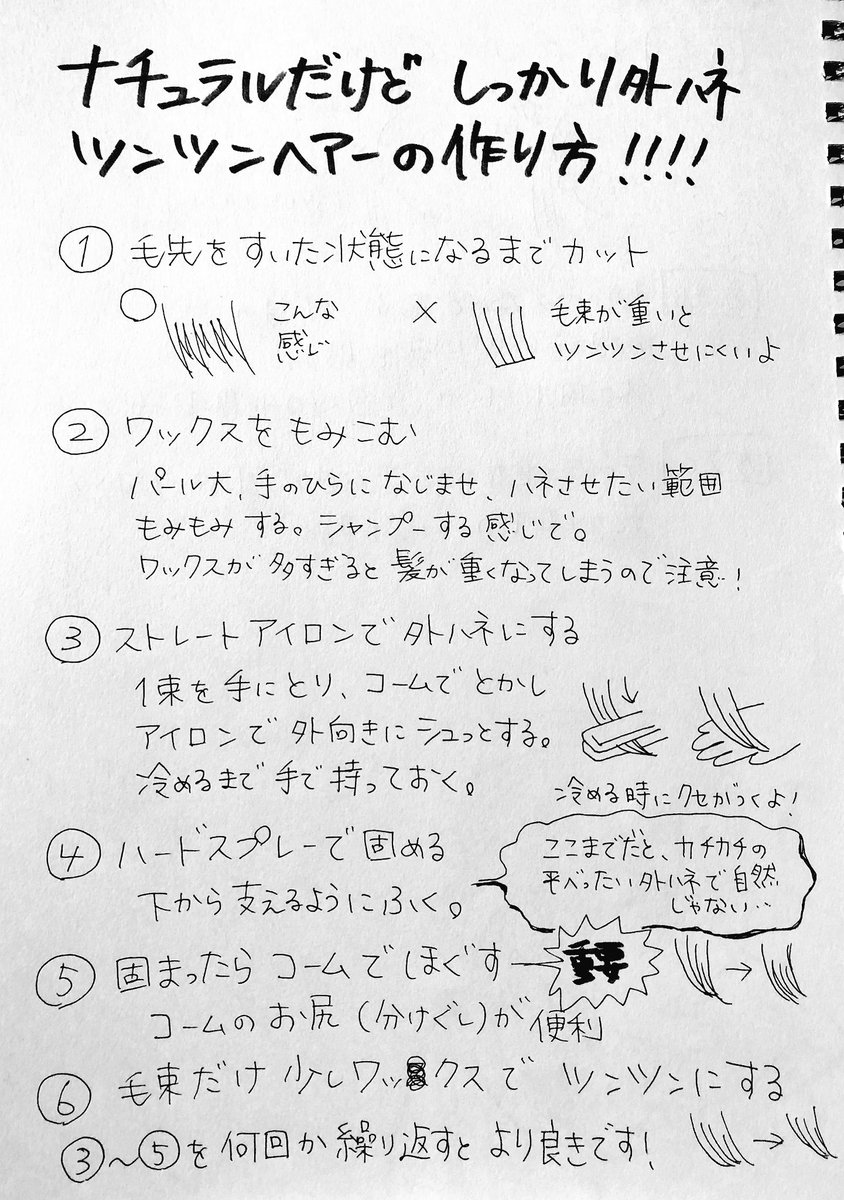 ナチュラルだけど しっかり外ハネ
ツンツンヘアーの作り方!!!!
① 毛先をすいた状態になるまでカット
○ こんな
感じ
× 毛束が重いと
ツンツンさせにくいよ
② ワックスをもみこむ
パール大、手のひらになじませ、ハネさせたい範囲
もみもみする。シャンプーする感じで。
ワックスが多すぎると髪が重くなってしまうので注意!
③ ストレートアイロンで外ハネにする
1束を手にとり、コームでとかし
アイロンで外向きにシュっとする。
冷めるまで手で持っておく。
冷める時にクセがつくよ!
④ ハードスプレーで固める
下から支えるようにふく。
ここまでだと、カチカチの
平べったい外ハネで自然
じゃない…
⑤ 固まったらコームでほぐす
重要
コームのお尻(分けぐし)が便利
⑥ 毛束だけ少しワックスでツンツンにする
③~⑤を何回か繰り返すとより良きです!